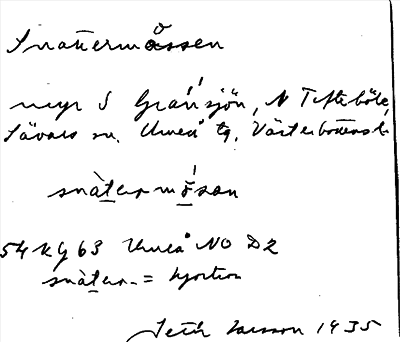 Snattermåssen
myr S Gransjön, N Tefteböle,
Sävars sn. Umeå tg, Västerbottens l.
snàtermósan
54 Kg 63 Umeå NO D2
snàter = hjortron
Larsson 1935